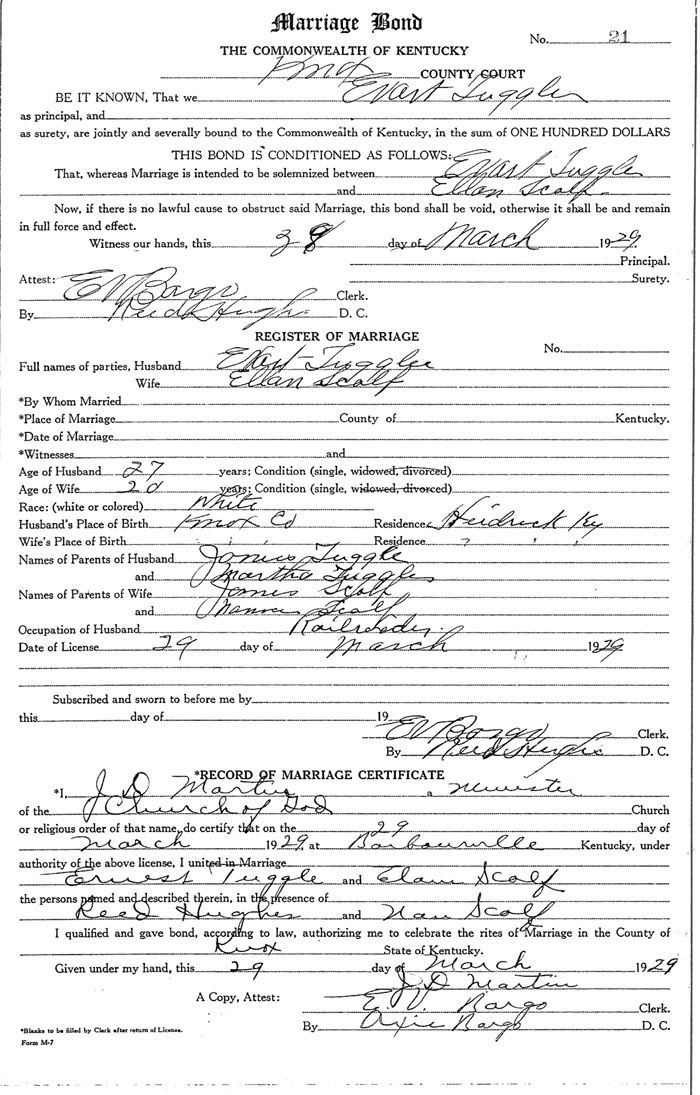 Marriage Bond
No. 21
THE COMMONWEALTH OF KENTUCKY
Knox COUNTY COURT
BE IT KNOWN, That we Evart Tuggle
as principal, and
as surety, are jointly and severally bound to the Commonwealth of Kentucky, in the sum of ONE HUNDRED DOLLARS
THIS BOND IS CONDITIONED AS FOLLOWS:
That, whereas Marriage is intended to be solemnized between Evart Tuggle
and Ellan Scalf
Now, if there is no lawful cause to obstruct said Marriage, this bond shall be void, otherwise it shall be and remain
in full force and effect.
Witness our hands, this day of March 1929
Principal.
Attest: Surety.
E V Bargo Clerk.
By Reed Hughes D. C.
REGISTER OF MARRIAGE
No.
Full names of parties, Husband Evart Tuggle
Wife Ellan Scalf
*By Whom Married
*Place of Marriage County of Kentucky.
*Date of Marriage
*Witnesses and
Age of Husband 27 years; Condition (single, widowed, divorced)
Age of Wife 20 years; Condition (single, widowed, divorced)
Race: (white or colored) White
Husband's Place of Birth Knox Co Residence Heidrick Ky
Wife's Place of Birth Residence
Names of Parents of Husband James Tuggle
and Martha Tuggle
Names of Parents of Wife James Scalf
and Scalf
Occupation of Husband
Date of License 29 day of March 1929
Subscribed and sworn to before me by
this day of 19
E V Bargo Clerk.
By Reed Hughes D. C.
*RECORD OF MARRIAGE CERTIFICATE
*I, J D Martin a minister
of the Church of God Church
or religious order of that name, do certify that on the 29 day of
March 1929 at Barbourville Kentucky, under
authority of the above license, I united in Marriage
Ernest Tuggle and Elam Scalf
the persons named and described therein, in the presence of
Reed Hughes and Nan Scalf
I qualified and gave bond, according to law, authorizing me to celebrate the rites of Marriage in the County of
Knox State of Kentucky.
Given under my hand, this 29 day of March 1929
J D Martin
A Copy, Attest: E. V. Bargo Clerk.
By Axie Bargo D. C.
*Blanks to be filled by Clerk after return of License.
Form M-7